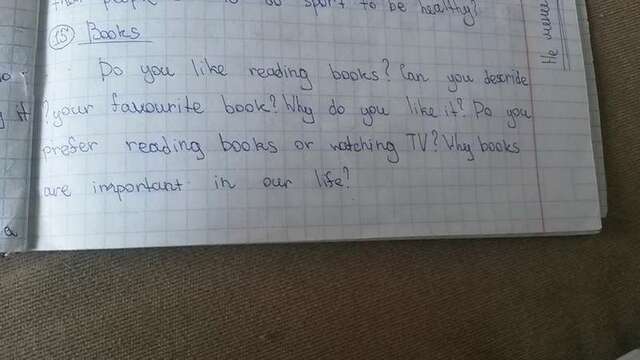 people sport to be healthy?
15 Books
Do you like reading books? Can you describe
your favourite book? Why do you like it? Do you
prefer reading books or watching TV? Why books
are important in our life?
Не
it
a